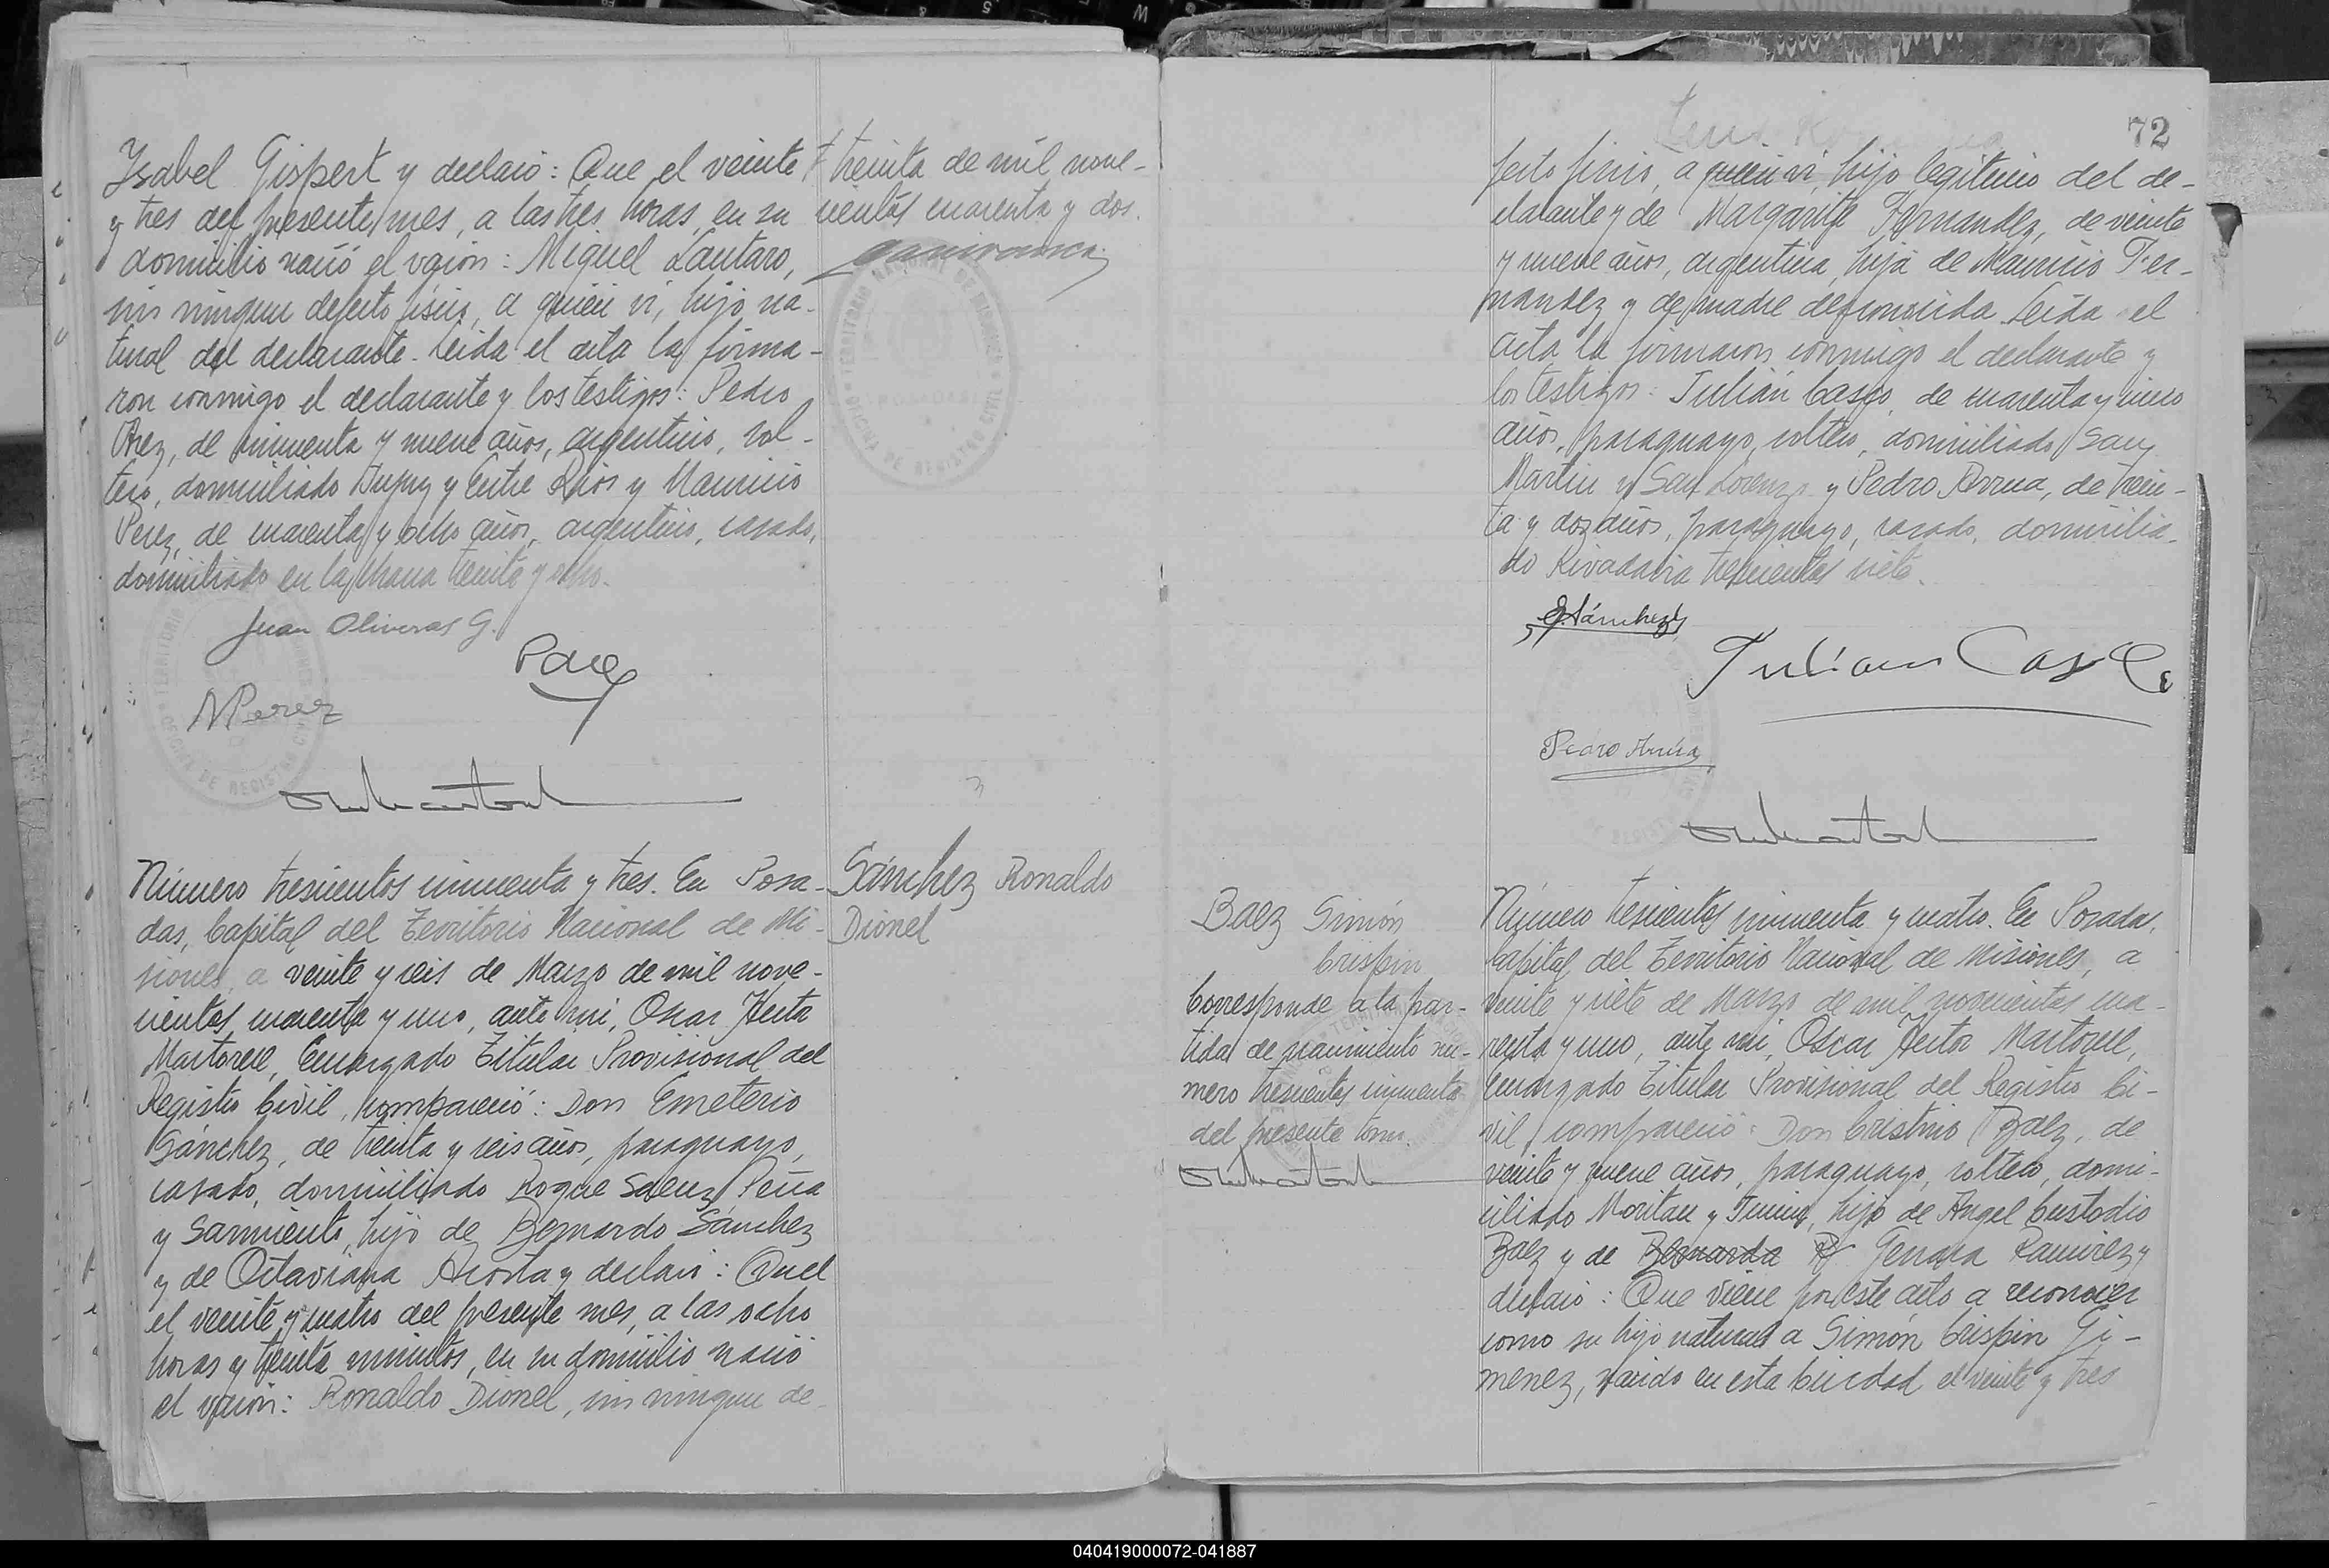 Ysabel Gispert y declaró: Que el veinte
y tres del presente mes, a las tres horas, en su
domicilio nació el varón: Miguel Lautaro,
sin ningun defecto físico, a quien vi, hijo na-
tural del declarante. Leida el acta la firma-
ron conmigo el declarante y los testigos: Pedro
Paez, de cincuenta y nueve años, argentino, sol-
tero, domiciliado Jujuy y Entre Rios y Mauricio
Perez, de cuarenta y ocho años, argentino, casado,
domiciliado en la chacra treinta y ocho.
Juan Oliveras G.
Paez
MPerez
treinta de mil nove-
cientos cuarenta y dos.
TERRITORIO NACIONAL DE MISIONES
POSADAS
OFICINA DE REGISTRO CIVIL
Número trescientos cincuenta y tres. En Posa-
das, Capital del Territorio Nacional de Mi-
siones, a veinte y seis de Marzo de mil nove-
cientos cuarenta y uno, ante mi, Oscar Hector
Martorell, Encargado Titular Provisional del
Registro Civil, compareció: Don Emeterio
Sánchez, de treinta y seis años, paraguayo,
casado, domiciliado Roque Saenz Peña
y Sarmiento, hijo de Bernardo Sánchez
y de Octaviana Acosta y declaró: Quel
el veinte y cuatro del presente mes, a las ocho
horas y treinta minutos, en su domicilio nació
el varón: Ronaldo Dionel, sin ningun de-
Sánchez Ronaldo
Dionel
72
fecto físico, a quien vi, hijo legitimo del de-
clarante y de Margarita Fernandez, de veinte
y nueve años, argentina, hija de Mauricio Fer-
nandez y de madre desconocida. Leida el
acta la firmaron conmigo el declarante y
los testigos: Julián Casco, de cuarenta y cinco
años, paraguayo, soltero, domiciliado San
Martin y San Lorenzo y Pedro Arrua, de trein-
ta y dos años, paraguayo, casado, domicilia-
do Rivadavia trescientos siete.
ESánchez
Julian Casco
Pedro Arrúa
Baez Simón
Crispin
Corresponde a la par-
tida de nacimiento nú-
mero trescientos cincuenta
del presente tomo.
Número trescientos cincuenta y cuatro. En Posadas,
Capital del Territorio Nacional de Misiones, a
veinte y siete de Marzo de mil novecientos cua-
renta y uno, ante mi, Oscar Hector Martorell,
Encargado Titular Provisional del Registro Ci-
vil, compareció: Don Cristino Baez, de
veinte y nueve años, paraguayo, soltero, domi-
ciliado Moritan y Junin, hijo de Angel Custodio
Baez y de Bernarda R Genara Ramirez y
declaró: Que viene por este acto a reconocer
como su hijo natural a Simón Crispin Gi-
menez, nacido en esta Ciudad el veinte y tres
040419000072-041887